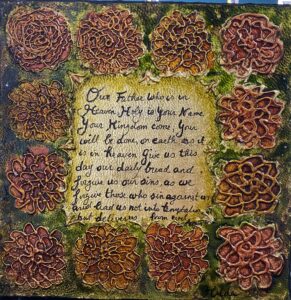 Our Father who is in
Heaven Holy is Your Name
Your Kingdom come Your
will be done, on earth as it
is in heaven Give us this
day our daily bread and
forgive us our sins as we
forgive those who sin against us
and lead us not into temptation
but deliver us from evil